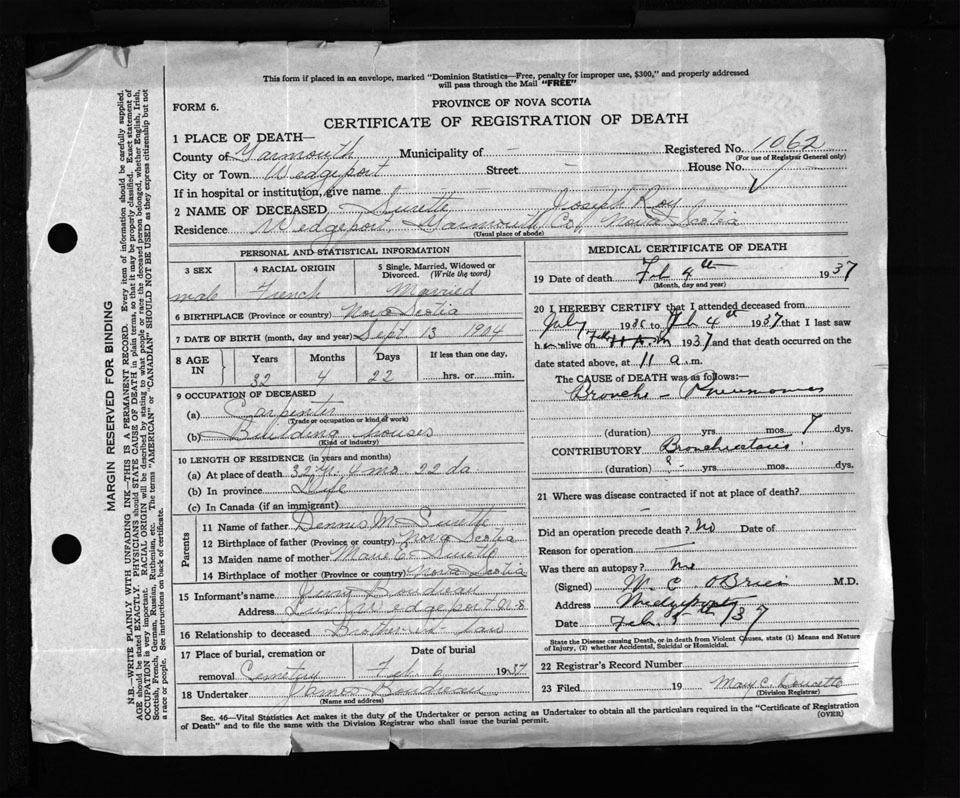 This form if placed in an envelope, marked "Dominion Statistics—Free, penalty for improper use, $300," and properly addressed
will pass through the Mail "FREE"
FORM 6.
PROVINCE OF NOVA SCOTIA
CERTIFICATE OF REGISTRATION OF DEATH
1 PLACE OF DEATH—
Registered No. 1062
(For use of Registrar General only)
County of Yarmouth Municipality of -
City or Town Wedgeport Street - House No.
If in hospital or institution, give name
2 NAME OF DECEASED Surette Joseph Roy
Residence Wedgeport Yarmouth Co Nova Scotia
(Usual place of abode)
PERSONAL AND STATISTICAL INFORMATION
3 SEX 4 RACIAL ORIGIN 5 Single, Married, Widowed or Divorced. (Write the word)
male French Married
6 BIRTHPLACE (Province or country) Nova Scotia
7 DATE OF BIRTH (month, day and year) Sept 13 1904
8 AGE IN Years Months Days If less than one day,
32 4 22 hrs. or min.
9 OCCUPATION OF DECEASED
(a) Carpenter
(Trade or occupation or kind of work)
(b) Building houses
(Kind of industry)
10 LENGTH OF RESIDENCE (in years and months)
(a) At place of death 32 yr. 4 mo. 22 da
(b) In province Life
(c) In Canada (if an immigrant)
Parents
11 Name of father Dennis M. Surette
12 Birthplace of father (Province or country) Nova Scotia
13 Maiden name of mother Marie C. Surette
14 Birthplace of mother (Province or country) Nova Scotia
15 Informant's name Boudreau
Address Wedgeport
16 Relationship to deceased Brother-in-law
17 Place of burial, cremation or removal Cemetery Date of burial Feb 6 1937
18 Undertaker James Boudreau
(Name and address)
MEDICAL CERTIFICATE OF DEATH
19 Date of death Feb 4th 1937
(Month, day and year)
20 I HEREBY CERTIFY that I attended deceased from
July 193 to Feb 4th 1937 that I last saw
h alive on Feb 1937 and that death occurred on the
date stated above, at 11 a.m.
The CAUSE OF DEATH was as follows:—
Broncho-Pneumonia
(duration) yrs. mos. 7 dys.
CONTRIBUTORY Bronchiectasis
(duration) ? - yrs. mos. dys.
21 Where was disease contracted if not at place of death?
-
Did an operation precede death? no Date of
Reason for operation -
Was there an autopsy? no
(Signed) W. C. O'Brien M.D.
Address Wedgeport
Date Feb 5th /37
State the Disease causing Death, or in death from Violent Causes, state (1) Means and Nature
of Injury, (2) whether Accidental, Suicidal or Homicidal.
22 Registrar's Record Number
23 Filed 19 Mary C. Doucette
(Division Registrar)
Sec. 46—Vital Statistics Act makes it the duty of the Undertaker or person acting as Undertaker to obtain all the particulars required in the "Certificate of Registration
of Death" and to file the same with the Division Registrar who shall issue the burial permit.
(OVER)
MARGIN RESERVED FOR BINDING
N.B.—WRITE PLAINLY WITH UNFADING INK—THIS IS A PERMANENT RECORD. Every item of information should be carefully supplied.
AGE should be stated EXACTLY. PHYSICIANS should STATE CAUSE OF DEATH in plain terms, so that it may be properly classified. Exact statement of
OCCUPATION is very important. RACIAL ORIGIN will be described by stating to what people or race the deceased person belonged, whether English, Irish,
Scottish, French, German, Russian, Ruthenian, etc. The terms "AMERICAN" or "CANADIAN" SHOULD NOT BE USED as they express citizenship but not
a race or people. See instructions on back of certificate.